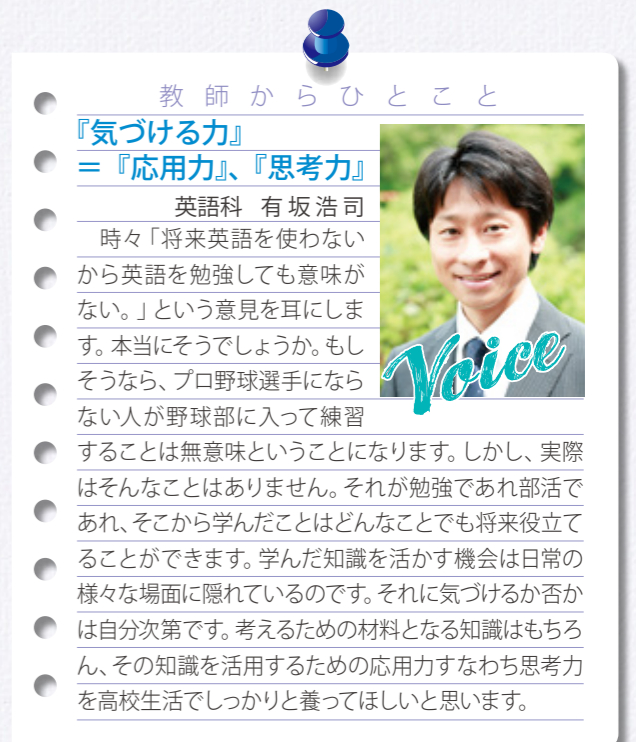 教師からひとこと
『気づける力』
＝『応用力』、『思考力』
英語科 有坂浩司
時々「将来英語を使わない
から英語を勉強しても意味が
ない。」という意見を耳にしま
す。本当にそうでしょうか。もし
そうなら、プロ野球選手になら
ない人が野球部に入って練習
することは無意味ということになります。しかし、実際
はそんなことはありません。それが勉強であれ部活で
あれ、そこから学んだことはどんなことでも将来役立て
ることができます。学んだ知識を活かす機会は日常の
様々な場面に隠れているのです。それに気づけるか否か
は自分次第です。考えるための材料となる知識はもちろ
ん、その知識を活用するための応用力すなわち思考力
を高校生活でしっかりと養ってほしいと思います。
Voice